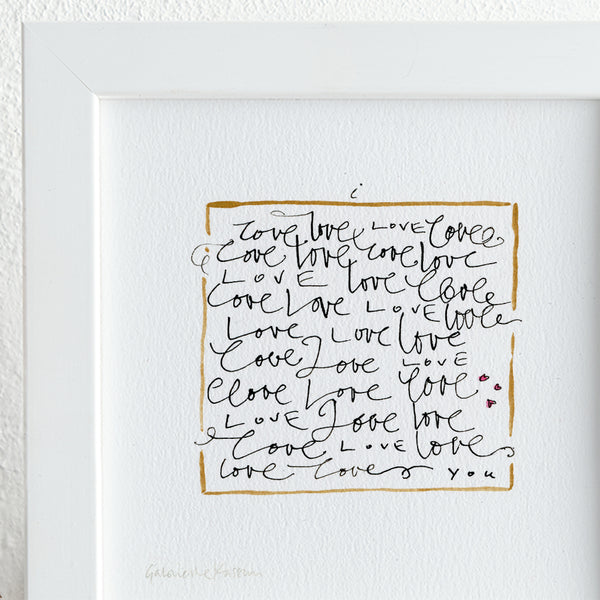 i
love love LOVE love
love love love love
LOVE love love
love love LOVE love
love love love
love love LOVE
love love love
LOVE love love
love LOVE love
love love you